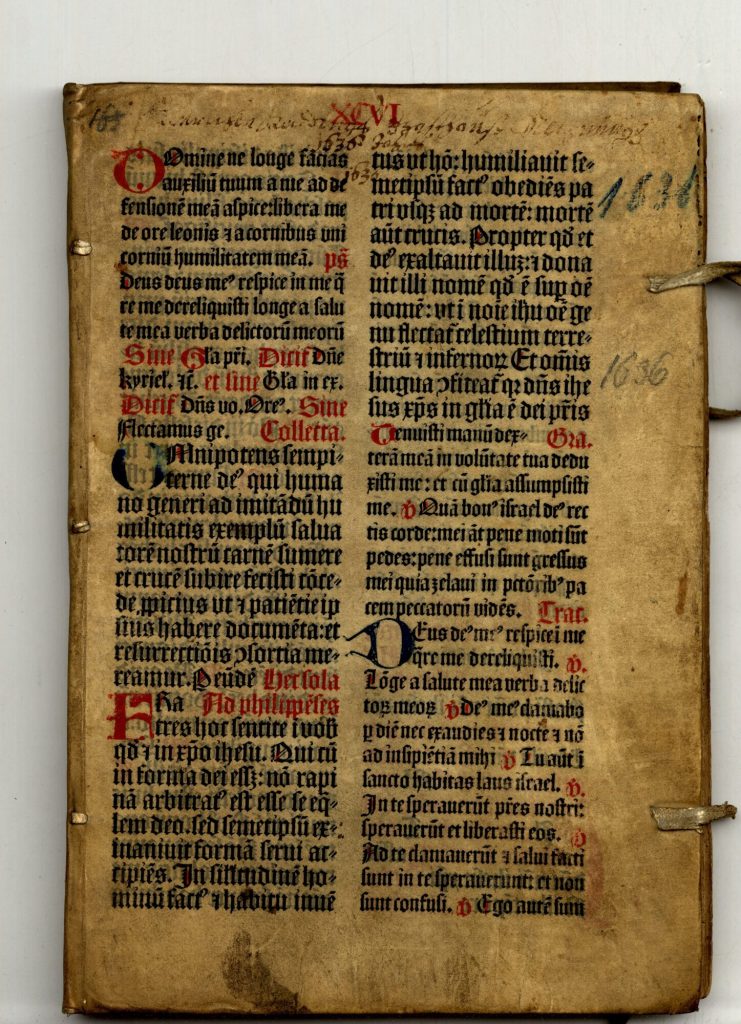 XCVI
1636
163
1636
1636
Domine ne longe facias
auxiliū tuum a me ad de
fensionē meā aspice: libera me
de ore leonis ⁊ a cornibus uni
corniū humilitatem meā. pṡ
Deus deus meꝰ respice in me q̄
re me dereliquisti longe a salu
te mea verba delictorū meorū
Sine Gl̄a pr̄i. Dicit̄ Dn̄e
kyriel. ⁊c̄. et sine Gl̄a in ex.
Dicit̄ Dn̄s vo. Oreꝰ. Sine
Flectamus ge. Colletta.
OMnipotens sempi-
terne deꝰ qui huma
no generi ad imitādū hu
militatis exemplū salua
torē nostrū carnē sumere
et crucē subire fecisti cōce-
de ꝓpicius vt ⁊ patiētie ip
sius habere documēta: et
resurrectiōis ꝯsortia me-
reamur. Per eūdē
Ad philippēses
FRa
tres hoc sentite ī vob̄
qd̄ ⁊ in xp̄o ihesu. Qui cū
in forma dei essꝫ: nō rapi
nā arbitratꝰ est esse se eq̄
lem deo. sed semetipsū ex-
inaniuit formā serui ac-
cipiēs. In sil̄itudinē ho-
minū factꝰ ⁊ habitu inuē
tus vt hō: humiliauit se-
metipsū factꝰ obediēs pa
tri vsqꝫ ad mortē: mortē
aūt crucis. Propter qd̄ et
deꝰ exaltauit illuꝫ: ⁊ dona
uit illi nomē qd̄ ē suꝑ oē
nomē: vt ī noīe ihu oē ge
nu flectat̄ celestium terre-
striū ⁊ infernoꝝ Et om̄is
lingua ꝯfiteat̄ qꝛ dn̄s ihe
sus xp̄s in gl̄ia ē dei pr̄is
Tenuisti manū dex- Gra.
terā meā in volūtate tua dedu
xisti me: et cū gl̄ia assumpsisti
me. ꝟ Quā bonꝰ israel deꝰ rec
tis corde: mei āt pene moti sūt
pedes: pene effusi sunt gressus
mei quia zelaui in pctōribꝰ pa
cem peccatorū vidēs. Trac.
DEus deꝰ meꝰ respice ī me
q̄re me dereliquisti. ꝟ.
Lōge a salute mea verba delic
toꝝ meoꝝ ꝟ Deꝰ meꝰ clamabo
ꝑ diē nec exaudies ⁊ nocte ⁊ nō
ad insipiētiā mihi ꝟ Tu aūt ī
sancto habitas laus israel. ꝟ.
In te sperauerūt pr̄es nostri:
sperauerūt et liberasti eos. ꝟ
Ad te clamauerūt ⁊ salui facti
sunt in te sperauerunt: et non
sunt confusi. ꝟ Ego autē sum